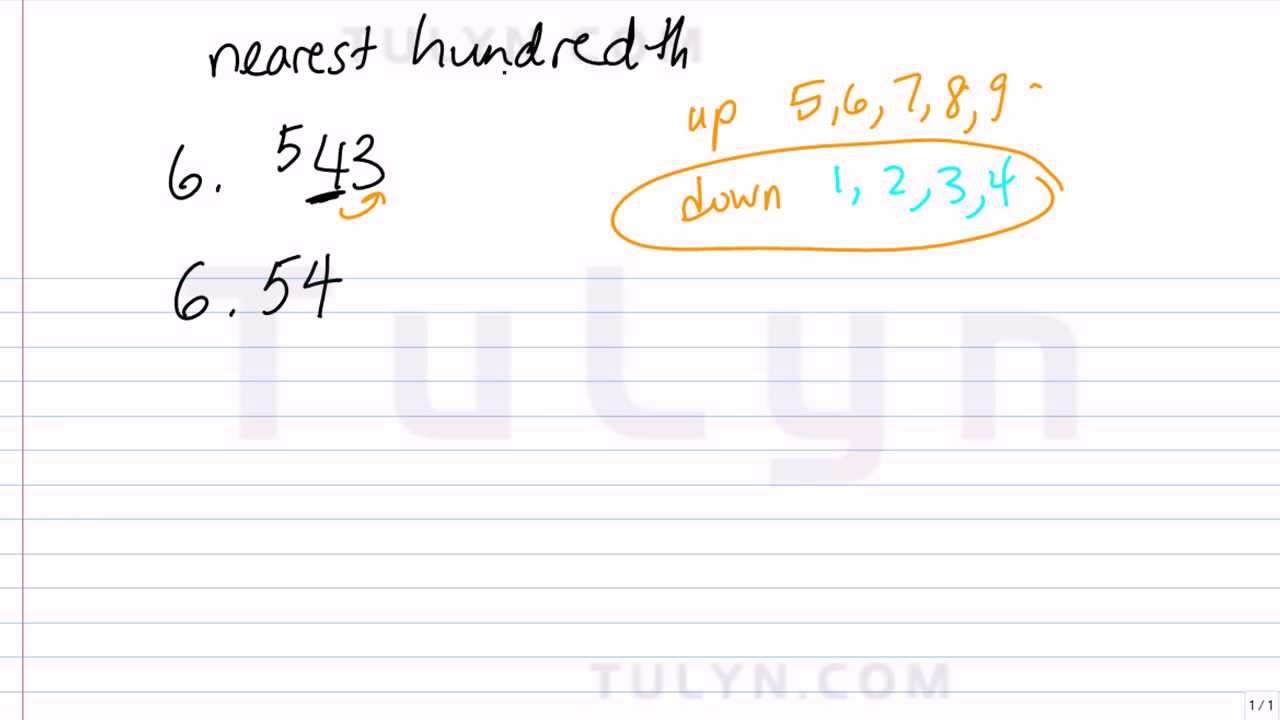 TULYN.COM
nearest hundredth
up 5,6,7,8,9
6.543
down 1,2,3,4
6.54
TuLyn
TULYN.COM
1/1